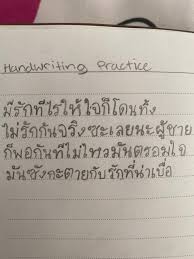 Handwriting Practice
มีรักทีไรให้ใจก็โดนทิ้ง
ไม่รักกันจริงซะเลยนะผู้ชาย
ก็พอกันทีไม่ไหวมันตรอมใจ
มันซังกะตายกับรักที่น่าเบื่อ